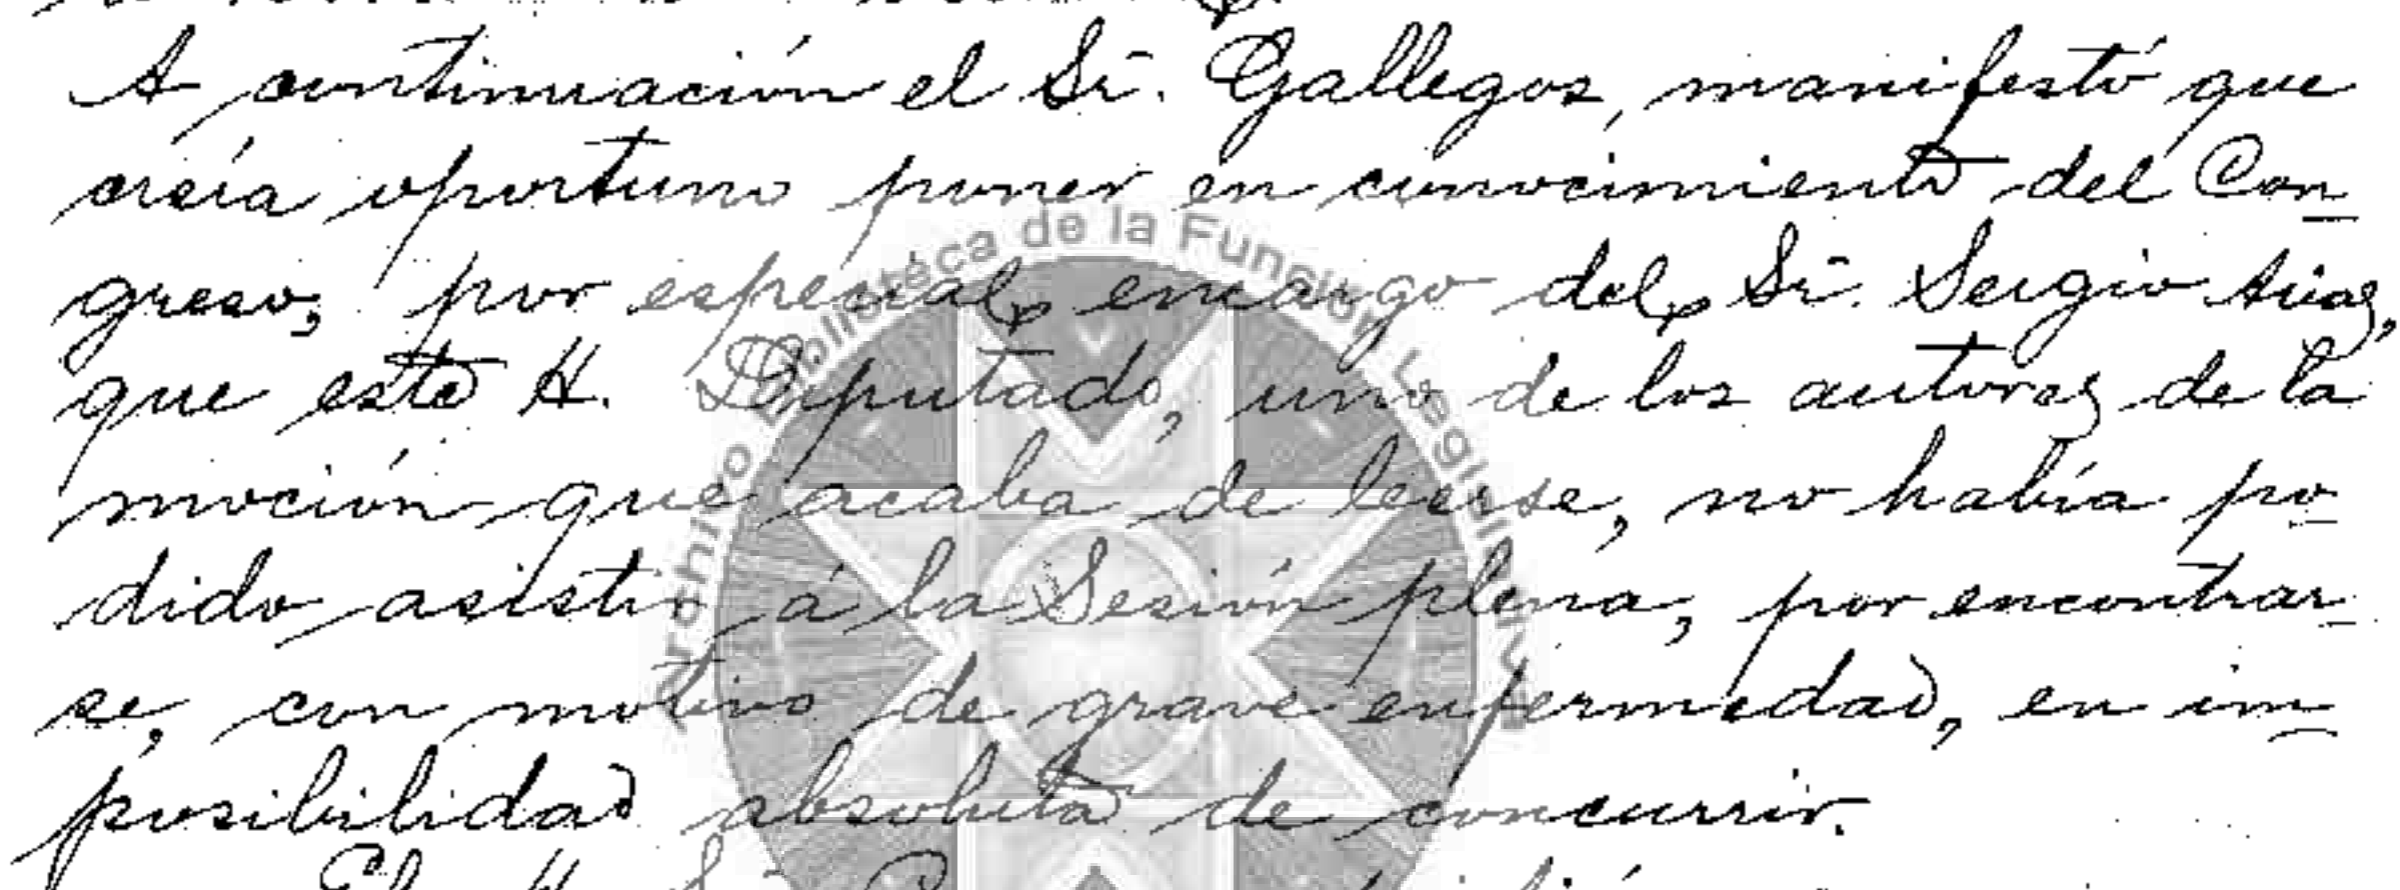 A continuación el Sr. Gallegos, manifestó que
creía oportuno poner en conocimiento del Con-
greso, por especial encargo del Sr. Sergio Arias,
que este H. Diputado, uno de los autores de la
moción que acaba de leerse, no había po-
dido asistir á la Sesión plena, por encontrar-
se, con motivo de grave enfermedad, en im-
posibilidad absoluta de concurrir.
El H. Sr.
Archivo Biblioteca de la Función Legislativa